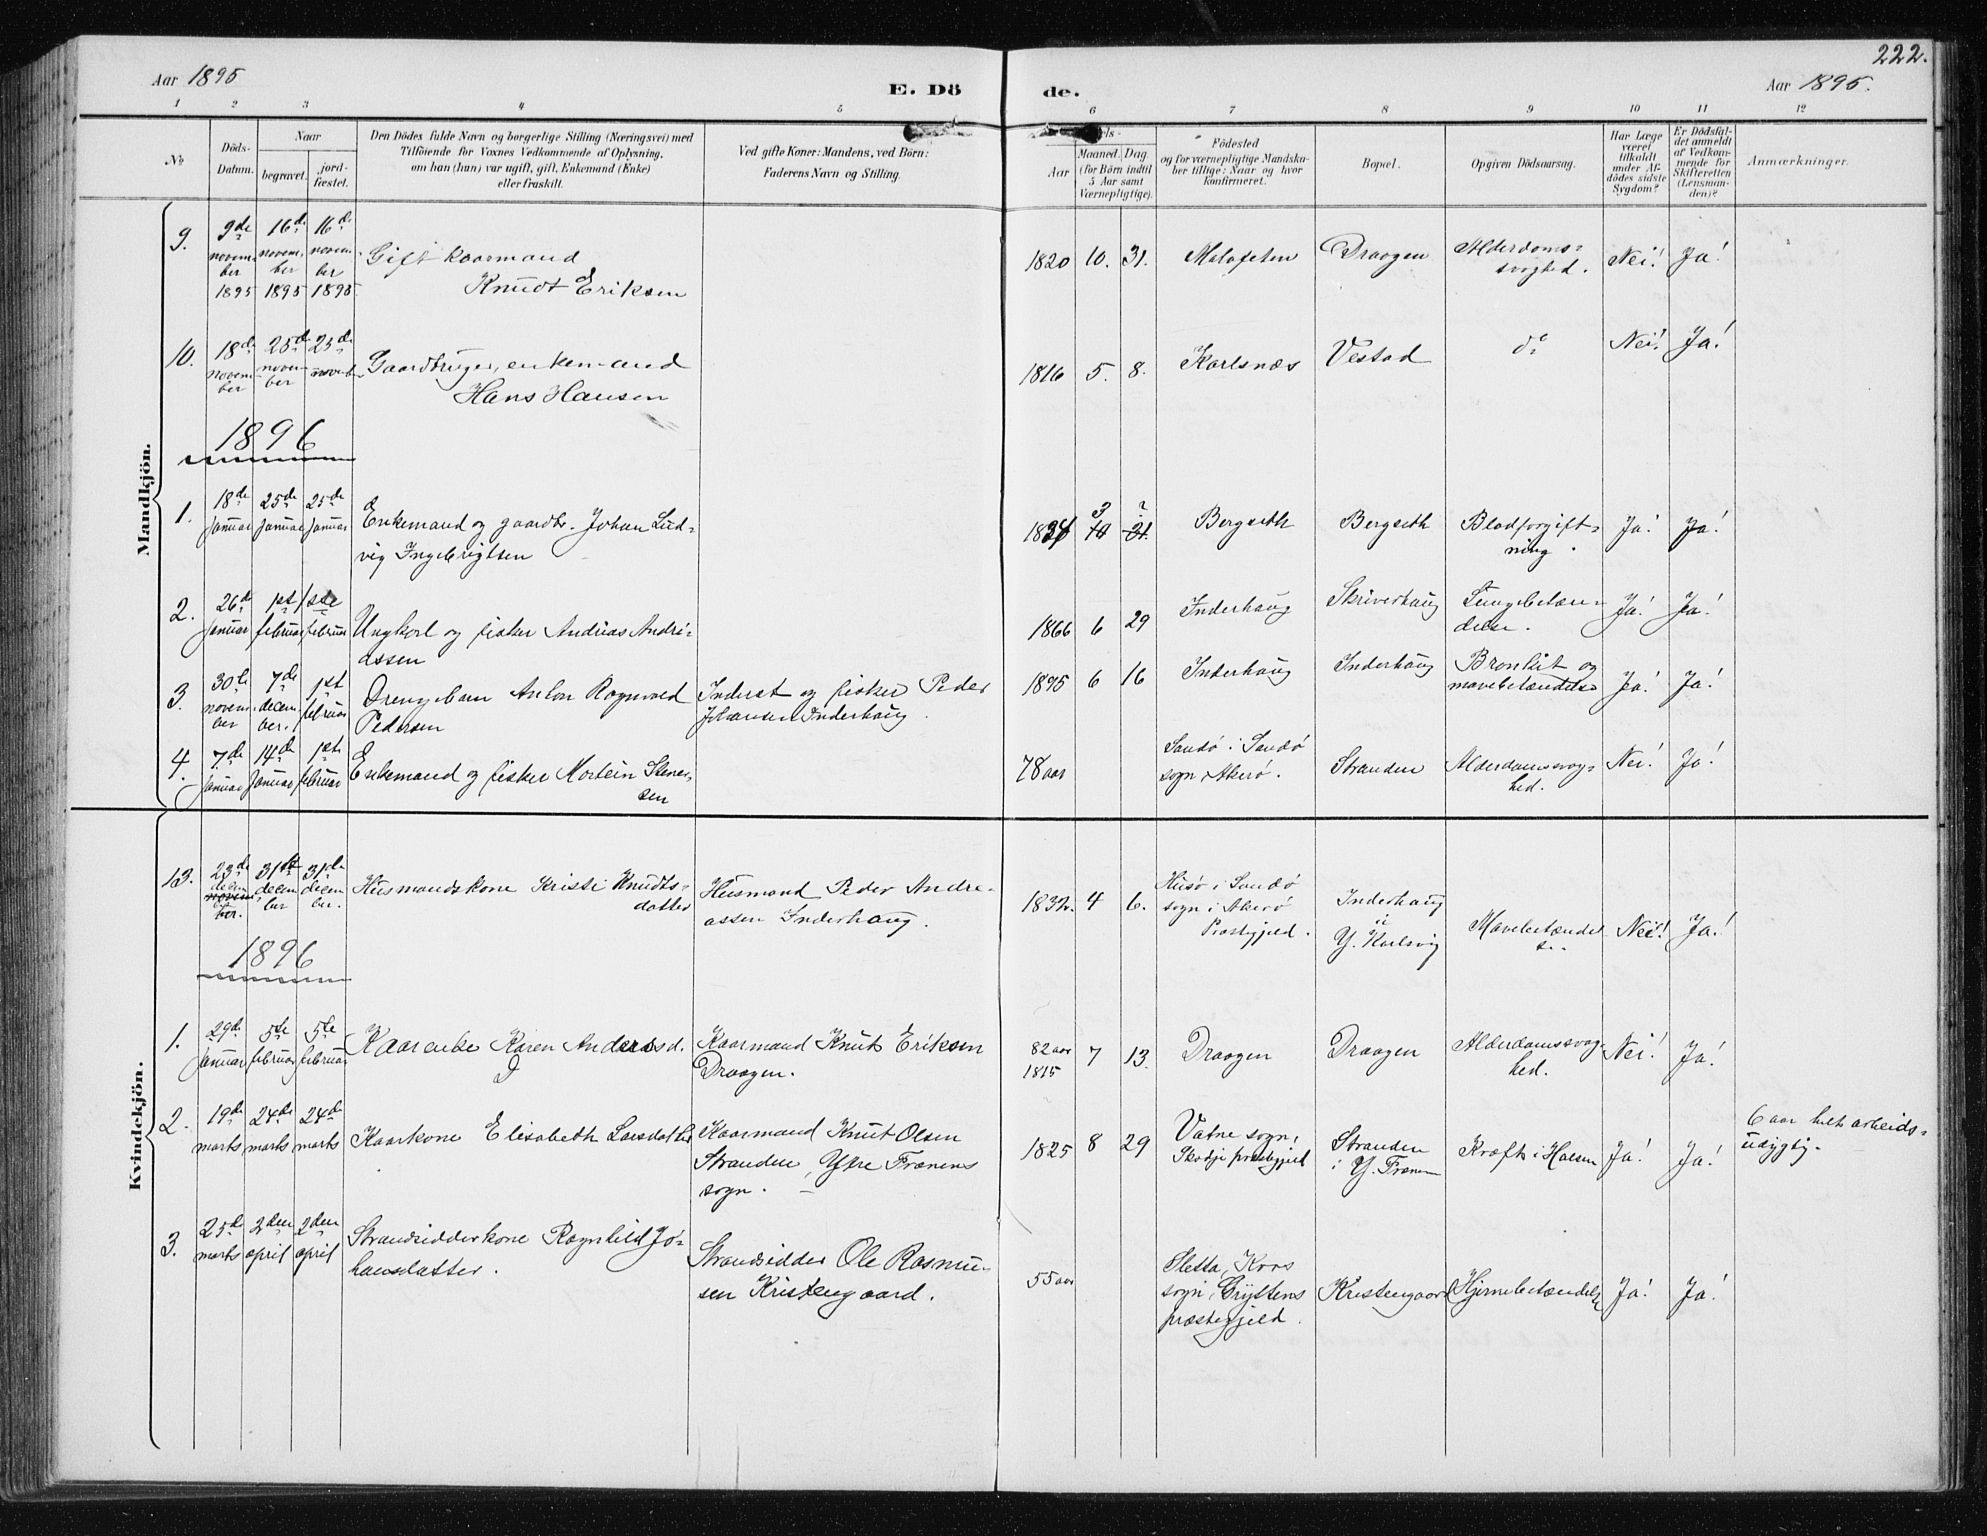 222.
Aar 1895
E. Dö
de.
Aar 1895.
1 2 3 4 5 6 7 8 9 10 11 12
No
Döds-
Datum.
Naar
begravet.
jord-
fæstet.
Den Dödes fulde Navn og borgerlige Stilling (Næringsvei) med
Tilföiende for Voxnes Vedkommende af Oplysning,
om han (hun) var ugift, gift, Enkemand (Enke)
eller fraskilt.
Ved gifte Koner: Mandens, ved Börn:
Faderens Navn og Stilling.
Aar
Maaned. Dag
(for Börn indtil
5 Aar samt
Værnepligtige).
Födested
og for værnepligtige Mandska-
ber tillige: Naar og hvor
konfirmeret.
Bopæl.
Opgiven Dödsaarsag.
Har Læge
været
tilkaldt
under Af-
dödes sidste
Sygdom?
Er Dödsfal-
det anmeldt
af Vedkom-
mende for
Skifteretten
(Lensman-
den)?
Anmærkninger.
Mandkjön.
9. 9de novem-ber 1895 16d. novem-ber 1895 16d. novem-ber 1895
Gift kaarmand
Knudt Eriksen
1820 10. 31. Malefeten Draagen Alderdoms-
svaghed. Nei! Ja!
10. 18de novem-ber 25de novem-ber 25de novemb.
Gaardbruger, enkemand
Hans Hansen
1816 5. 8. Karlsnæs Vestad do Nei! Ja!
1896
1. 18de Januar 25de Januar 25de Januar
Enkemand og gaardbr. Johan Lud-
vig Ingebrigtsen
3 10 21. Bergseth Bergseth Blodforgift-
ning. Ja! Ja!
2. 26d. Januar 1st februar 1ste februar
Ungkarl og fisker Andreas Andre-
assen
1866 6 29 Inderhaug Skriverhaug Lungebetæn-
delse. Ja! Ja!
3. 30te novem-ber 7de decem-ber. 1st februar
Drengebarn Anton Ragnvald
Pedersen
Inderst og fisker Peder
Johansen Inderhaug.
1895 6 16 Inderhaug Inderhaug Bronkit og
mavebetændelse Ja! Ja!
4. 7.de Januar 14de Januar 1st. februar
Enkemand og fisker Mortein Stener-
sen
78 aar Sandö i Sandö
sogn, Akerö. Stranden Alderdomssvag-
hed. Nei! Ja!
Kvindekjön.
13. 23de decem novem-ber. 31te decem ber 31de decem ber.
Husmandskone Kristi Knudts-
datter
Husmand Peder Andre-
assen Inderhaug.
1832. 4 6. Husö i Sandö
sogn i Akerö
Præstegjeld. Inderhaug
i
Y. Karlsvig Mavebetændel
se. Nei! Ja!
1896
1. 29de Januar 5te februar 5te februar
Kaarenke Karen Andersd.
Kaarmand Knut Eriksen
Draagen.
82 aar
1815 7 13. Draagen Draagen Alderdomssvag-
hed. Nei! Ja!
2. 19de marts 24de marts 24de marts
Kaarkone Elisabeth Larsdatter
Kaarmand Knut Olsen
Stranden, Ytre Frænens
sogn.
1825 8 29 Vatne sogn,
Skodje præstegjeld Stranden
i Y. Frænen Kræft i Halsen Ja! Ja!
6 aar helt arbeids-
udygtig.
3. 25de marts 2den april 2den april
Strandsidderkone Ragnhild Jo-
hansdatter.
Strandsidder Ole Rasmu-
sen Kristengaard.
55 aar Sletta, Kors
sogn, Gryttens
præstegjeld. Kristengaard Hjernebetændelse Ja! Ja!